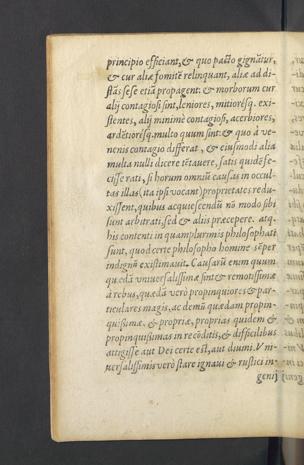 principio efficiant, & quo pacto gignãtur,
& cur aliæ fomitẽ relinquant, aliæ ad di-
stãs sese etiã propagent: & morborum cur
alij contagiosi sint, leniores, mitiorésq. exi-
stentes, alij minimè contagiosi, acerbiores,
ardẽtiorésq. multo quum sint: & quo à ve-
nenis contagio differat, & eiusmodi alia
multa nulli dicere tẽtauere, satis quidẽ fe-
cisse rati, si horum omniũ causas in occul-
tas illas (ita ipsi vocant) proprietates redu-
xissent, quibus acquiescendũ nõ modo sibi
sunt arbitrati, sed & aliis præcepere. atq.
his contenti in quamplurimis philosophati
sunt, quod certe philosopho homine sẽper
indignũ existimauit. Causarũ enim quum
quædã vniuersalissimæ sint & remotissimæ
à rebus, quædã verò propinquiores & par-
ticulares magis, ac demũ quædam propin-
quissimæ, & propriæ, proprias quidem &
propinquissimas in recõditis, & difficilibus
attigisse aut Dei certe est, aut diuini. Vni-
uersalissimis verò stare ignaui & rustici in-
genij